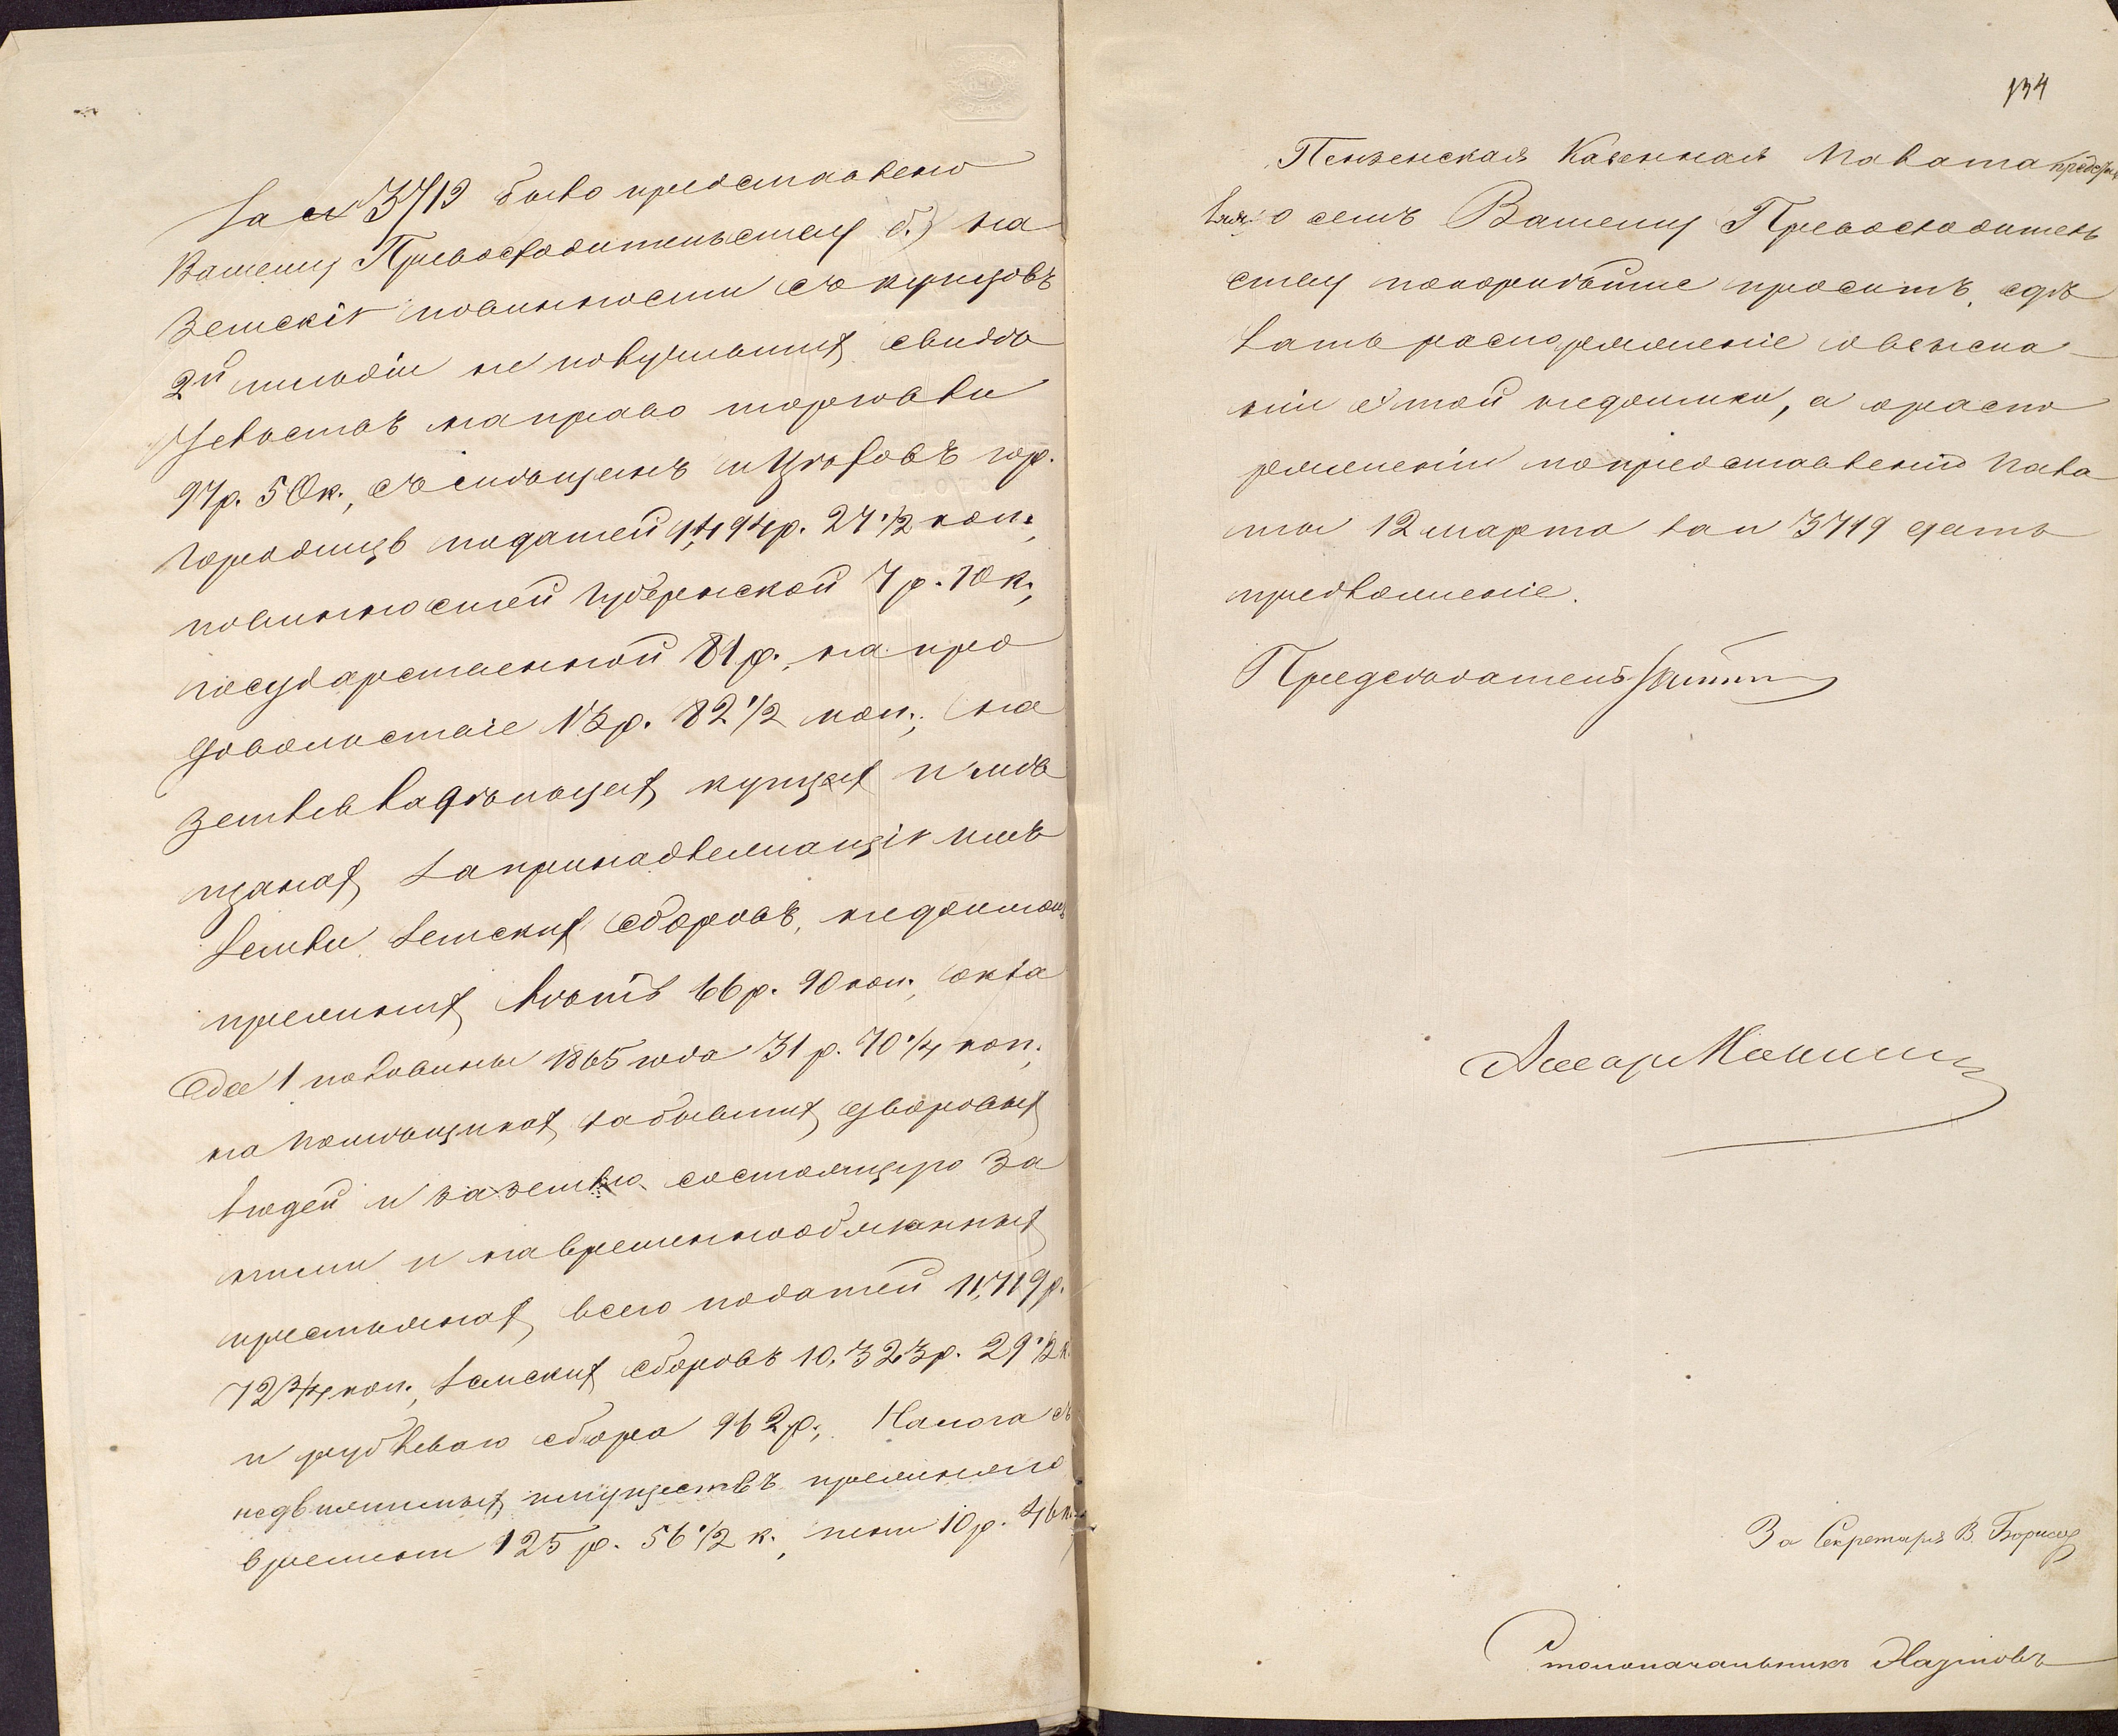 за № 3719 было представлено
Вашему Превосходительству б.) на
Земскія повинности съ купцовъ
2й гильдіи не получившихъ свидѣ
тельствъ на право торговли
97 р. 50 к., съ мѣщанъ и цѣховъ гор.
Городищъ податей 1,494 р. 27 1/2 коп.,
повинностей губернской 7 р. 10 к.,
государственной 81 р., на про
довольствіе 13 р. 82 1/2 коп.; на
землевладѣльцахъ купцахъ и мѣ
щанахъ за принадлежащія имъ
земли земскихъ сборовъ, недоимокъ
прежнихъ лѣтъ 66 р. 90 коп., окла
да 1 половины 1865 года 31 р. 70 1/4 коп.
на помѣщикахъ за бывшихъ дворовыхъ
людей и за землю состоящую за
ними и на временнообязанныхъ
крестьянахъ всего податей 11,719 р.
72 3/4 коп., земскихъ сборовъ 10,323 р. 29 1/2 к.
и рублеваго сбора 962 р.; Налога съ
недвижимыхъ имуществъ прежняго
времени 125 р. 56 1/2 к., пени 10 р. 46 к.
134
Пензенская Казенная Палата
о семъ Вашему Превосходитель
ству покорнѣйше проситъ сдѣ
лать распоряженіе о взыска
ніи этой недоимки, а о распо
ряженіи по представленію Пала
ты 12 марта за № 3719 дать
предложеніе.
Предсѣдатель
За Секретаря В. Борисов
Столоначальникъ Наумовъ